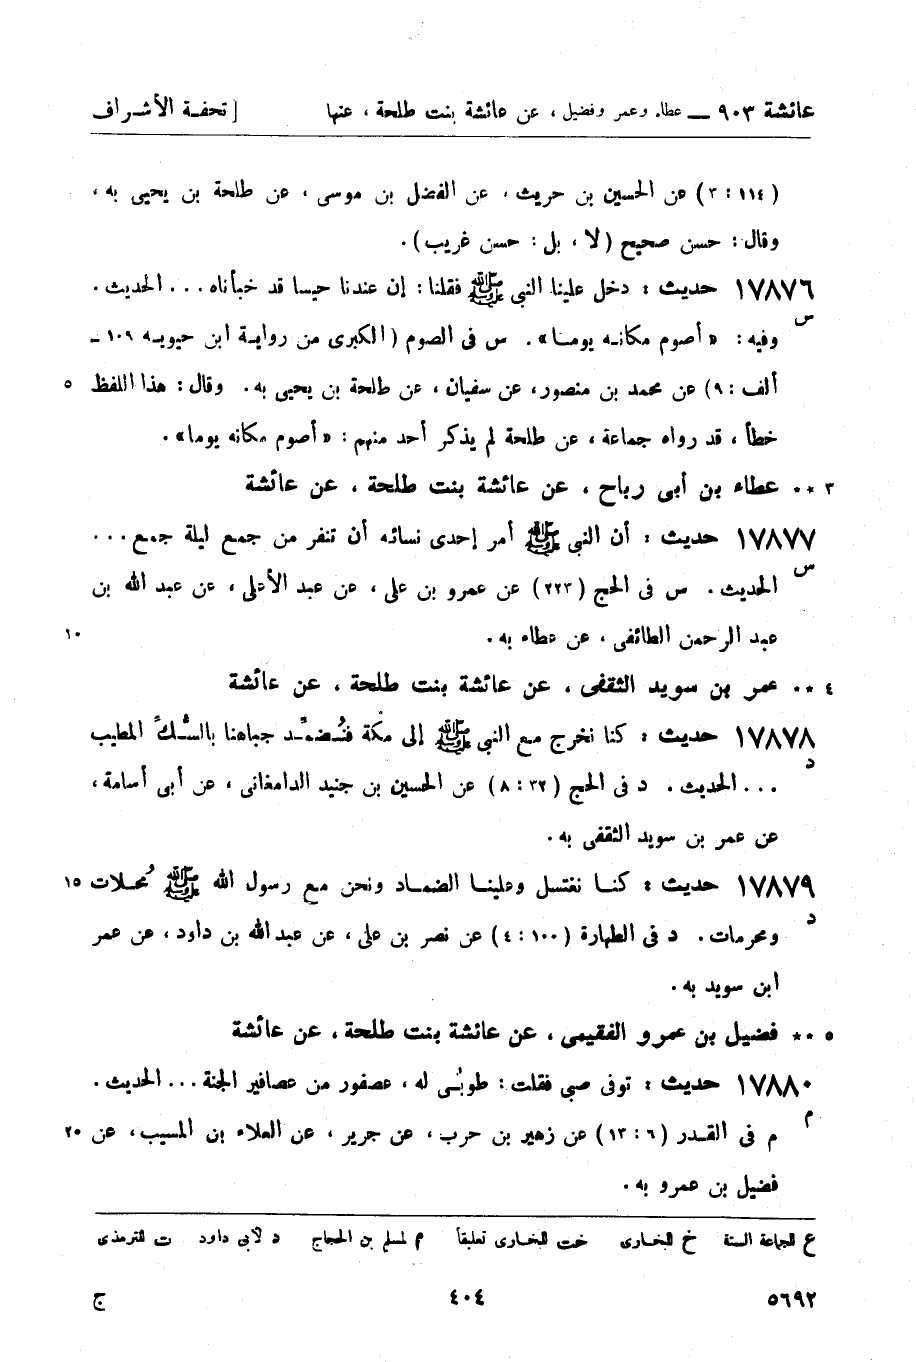 عائشة ٩٠٣ — عطاء وعمر وفضيل ، عن عائشة بنت طلحة ، عنها [ تحفة الأشراف
(١١٤ : ٣) عن الحسين بن حريث ، عن الفضل بن موسى ، عن طلحة بن يحيى به ،
وقال : حسن صحيح (لا ، بل : حسن غريب) .
١٧٨٧٦ حديث : دخل علينا النبي ﷺ فقلنا : إن عندنا حيسا قد خبأناه ... الحديث .
س
وفيه : «أصوم مكانه يوما» . س فى الصوم (الكبرى من رواية ابن حيويه ١٠٩ ــ
ألف : ٩) عن محمد بن منصور ، عن سفيان ، عن طلحة بن يحيى به . وقال : هذا اللفظ ٥
خطأ ، قد رواه جماعة ، عن طلحة لم يذكر أحد منهم : «أصوم مكانه يوما» .
٣ ** عطاء بن أبى رباح ، عن عائشة بنت طلحة ، عن عائشة
١٧٨٧٧ حديث : أن النبى ﷺ أمر إحدى نسائه أن تنفر من جمع ليلة جمع ...
س
الحديث . س فى الحج (٢٢٣) عن عمرو بن على ، عن عبد الأعلى ، عن عبد الله بن
عبد الرحمن الطائفى ، عن عطاء به . ١٠
٤ ** عمر بن سويد الثقفى ، عن عائشة بنت طلحة ، عن عائشة
١٧٨٧٨ حديث : كنا نخرج مع النبى ﷺ إلى مكة فنُضمِّد جباهنا بالسُّكِّ المطيب
د
... الحديث . د فى الحج (٣٢ : ٨) عن الحسين بن جنيد الدامغانى ، عن أبى أسامة ،
عن عمر بن سويد الثقفى به .
١٧٨٧٩ حديث : كنا نغتسل وعلينا الضماد ونحن مع رسول الله ﷺ مُحلات ١٥
د
ومحرمات . د فى الطهارة (١٠٠ : ٤) عن نصر بن على ، عن عبد الله بن داود ، عن عمر
ابن سويد به .
٥ ** فضيل بن عمرو الفقيمى ، عن عائشة بنت طلحة ، عن عائشة
١٧٨٨٠ حديث : توفى صبى فقلت : طوبٰى له ، عصفور من عصافير الجنة ... الحديث .
م
م فى القدر (٦ : ١٣) عن زهير بن حرب ، عن جرير ، عن العلاء بن المسيب ، عن ٢٠
فضيل بن عمرو به .
ع للجماعة الستة خ للبخارى خت للبخارى تعليقاً م لمسلم بن الحجاج د لأبى داود ت للترمذى
٥٦٩٢ ٤٠٤ ج